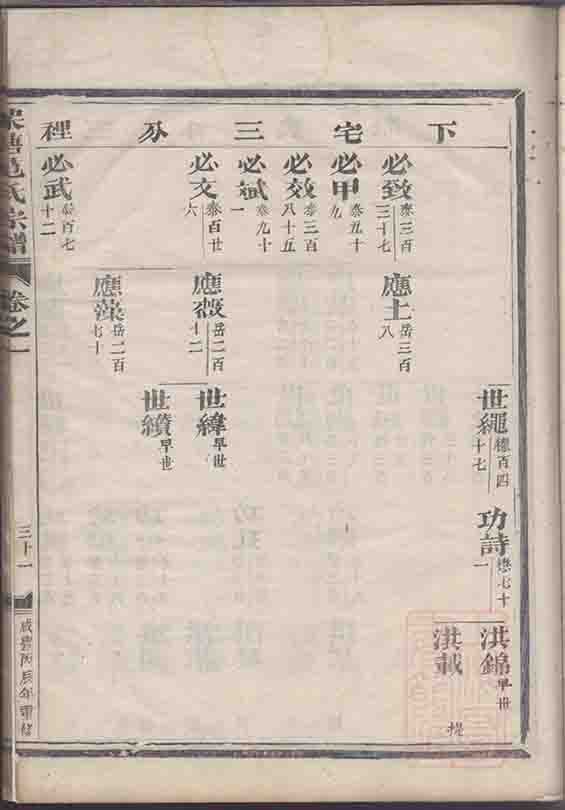 下宅三分裡
世繩 穗百四十七
功詩 懋七十一
洪錦 早世
洪載
必致 泰三百三十七
應土 岳三百八
必甲 泰五十九
必效 泰三百八十五
必斌 泰九十一
必文 泰百廿六
應薇 岳二百十二
世緯 早世
世纘 早世
應藻 岳二百七十
必武 泰百七十二
范氏宗譜
卷之一
三十一
咸豐丙辰年重修